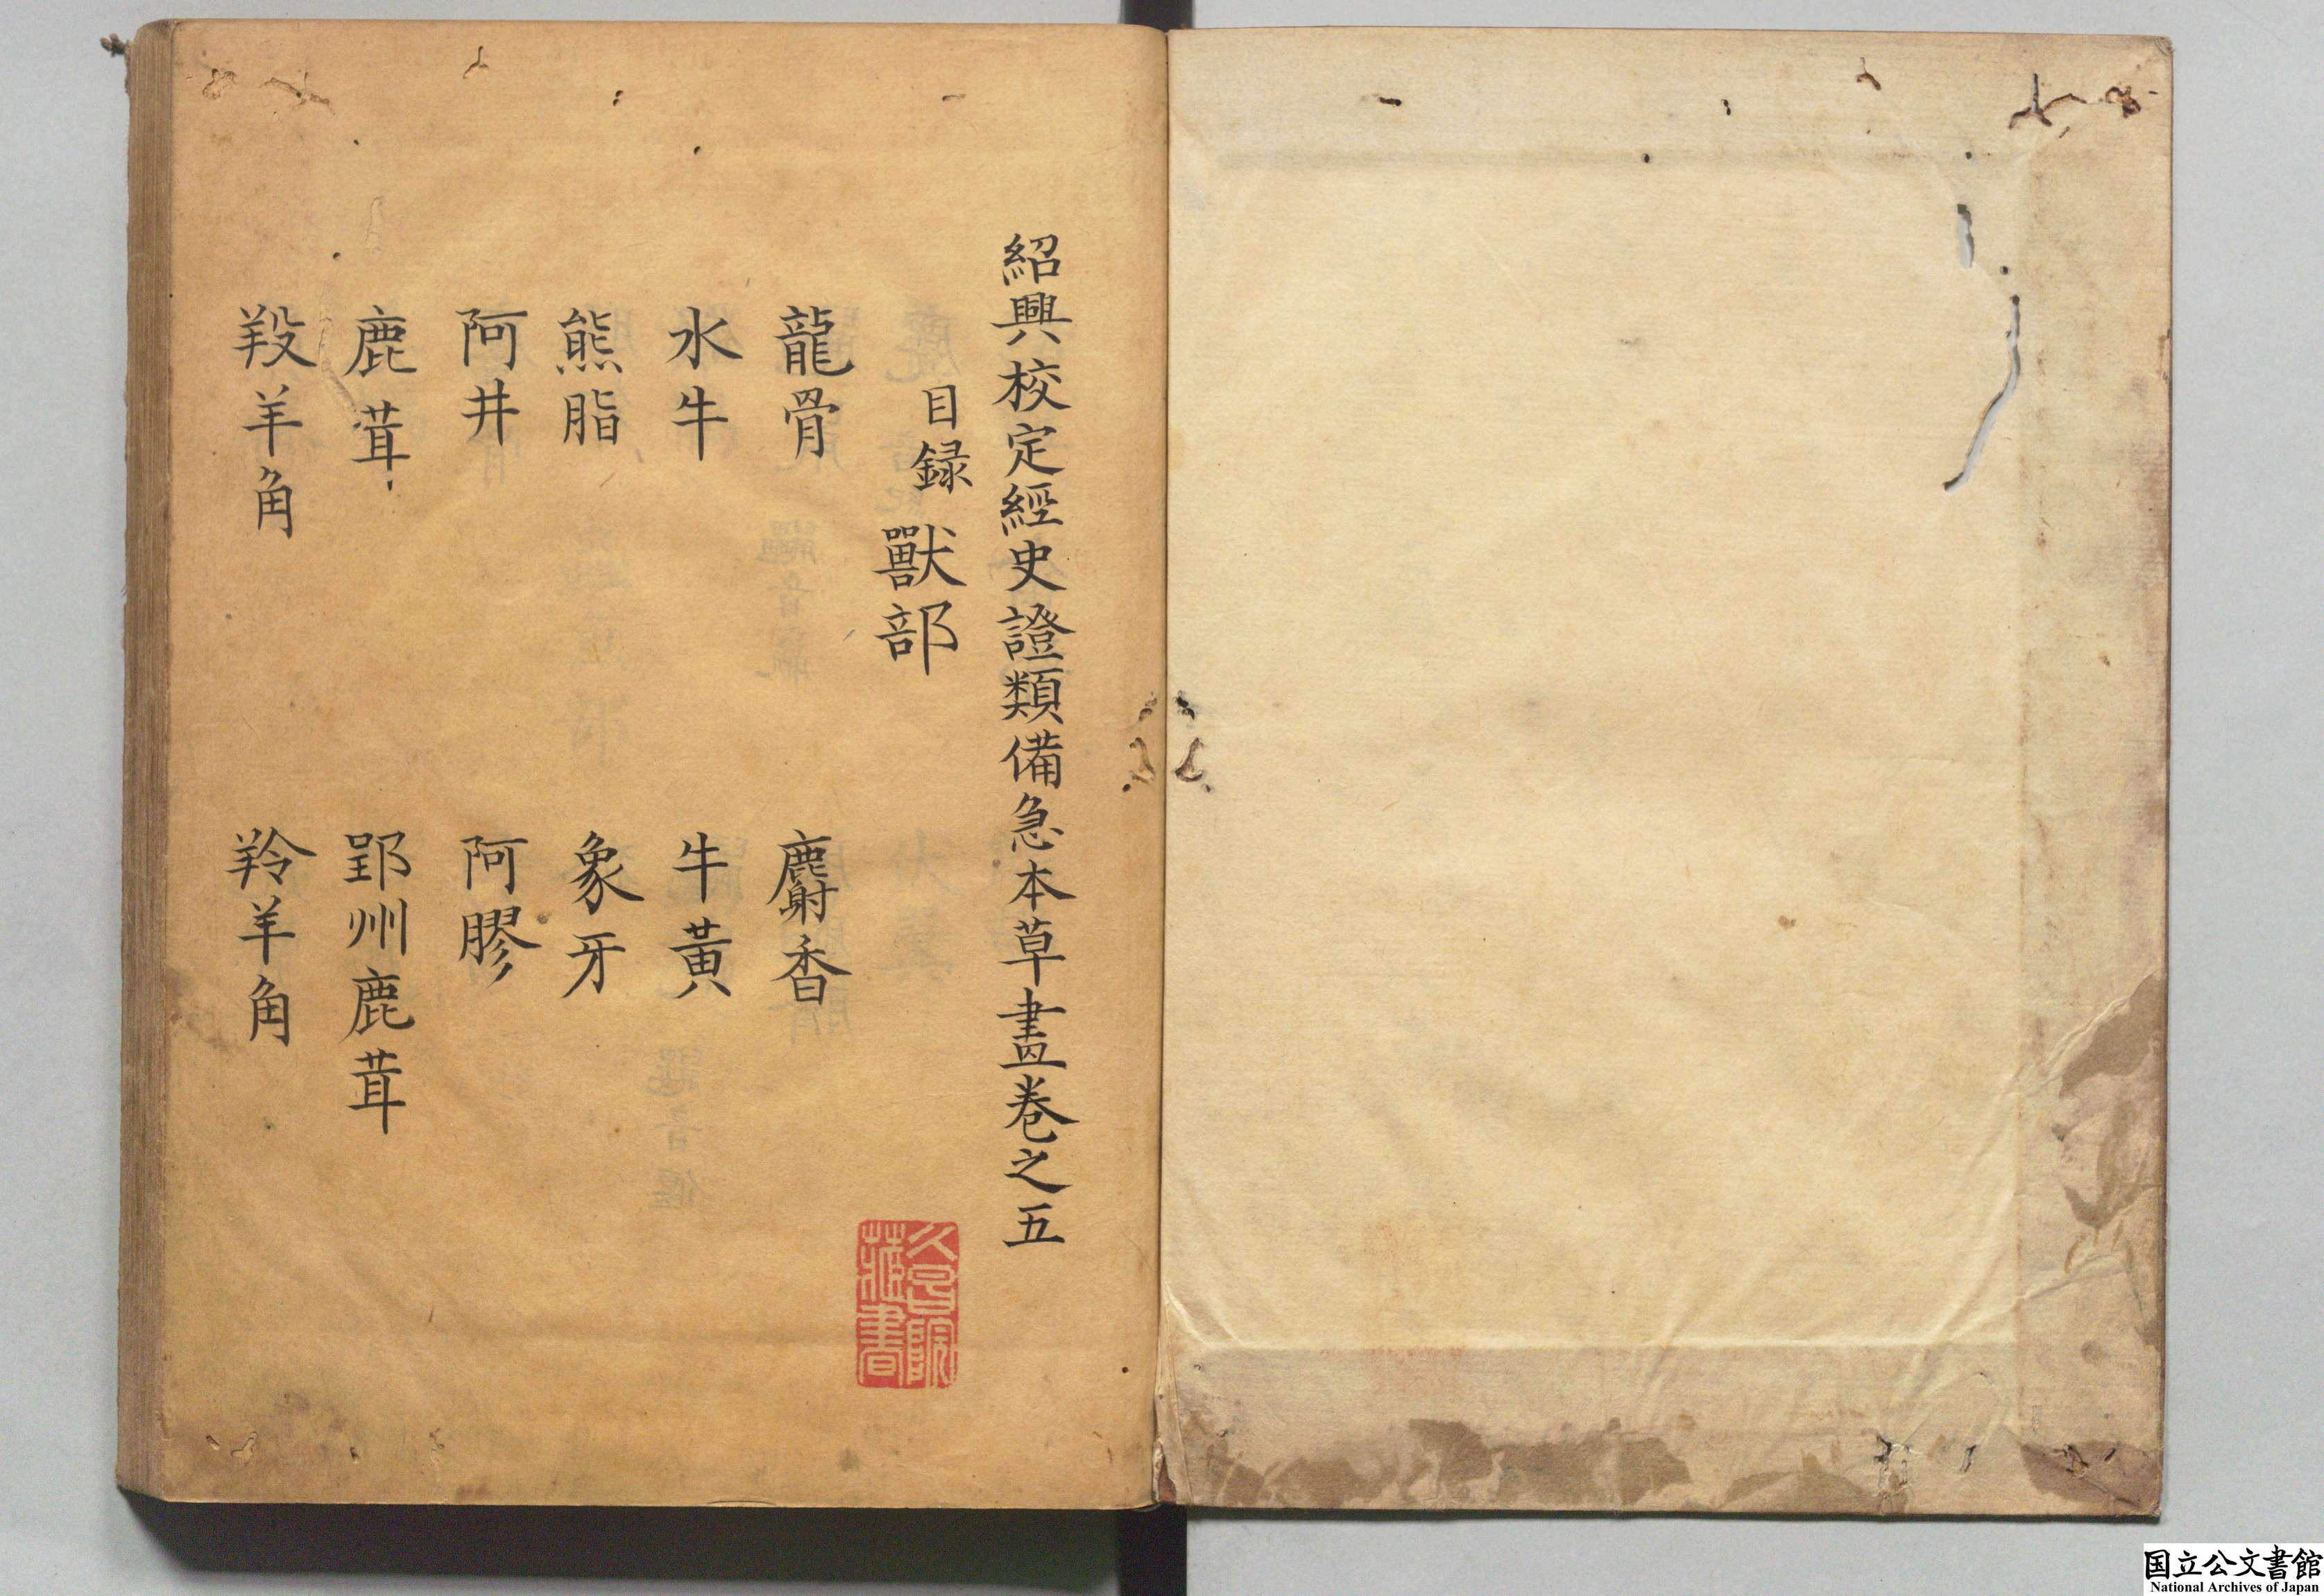 紹興校定經史證類備急本草畫卷之五
目録 獸部
龍骨 麝香
水牛 牛黃
熊脂 象牙
阿井 阿膠
鹿茸 郢州鹿茸
羖羊角 羚羊角
久昌院
藏書
国立公文書館
National Archives of Japan